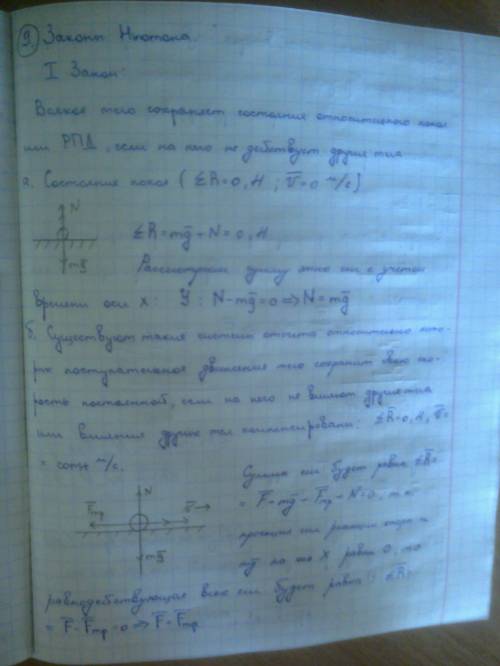 9. Законы Ньютона.
I Закон:
Всякое тело сохраняет состояния относительного покоя
или РПД, если на него не действует другие тела
а. Состояния покоя ( ΣR̄=0, Н ; V̄=0 м/с)
N
mḡ
ΣR̄=mḡ+N=0, Н
Рассмотрим сумму этих сил с учетом
времени оси X: У: N-mḡ=0 ⇒ N=mḡ
б. Существуют такие системы отсчета относительно кото-
рых поступательное движения тело сохранит свою ско-
рость постоянной, если на него не влияют другие тела
или влияния других тел компенсированы: ΣR̄=0, Н, V̄=
= const м/с.
Сумма сил будет равна ΣR̄=
= F̄-mḡ-F̄тр+N=0, т.к
проекция сил реакции опоры и
mḡ на ось X равны 0, то
N
F̄тр
V̄→
mḡ
равнодействующая всех сил будет равна: ΣR̄=
= F̄-F̄тр=0 ⇒ F̄=F̄тр